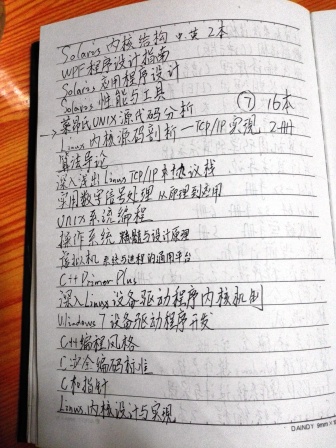 Solaris 内核结构 中英 2本
WPF程序设计指南
Solaris 应用程序设计
Solaris 性能与工具
→ 莱昂氏UNIX源代码分析 ⑦ 16本
Linux 内核源码剖析—TCP/IP实现 2册
算法导论
深入浅出Linux TCP/IP协议栈
实用数字信号处理 从原理到应用
UNIX系统编程
操作系统 精髓与设计原理
虚拟机 系统与进程的通用平台
C++ Primer Plus
深入Linux设备驱动程序内核机制
Windows 7 设备驱动程序开发
C++编程风格
C安全编码标准
C和指针
Linux 内核设计与实现
DAINDY 9mm×